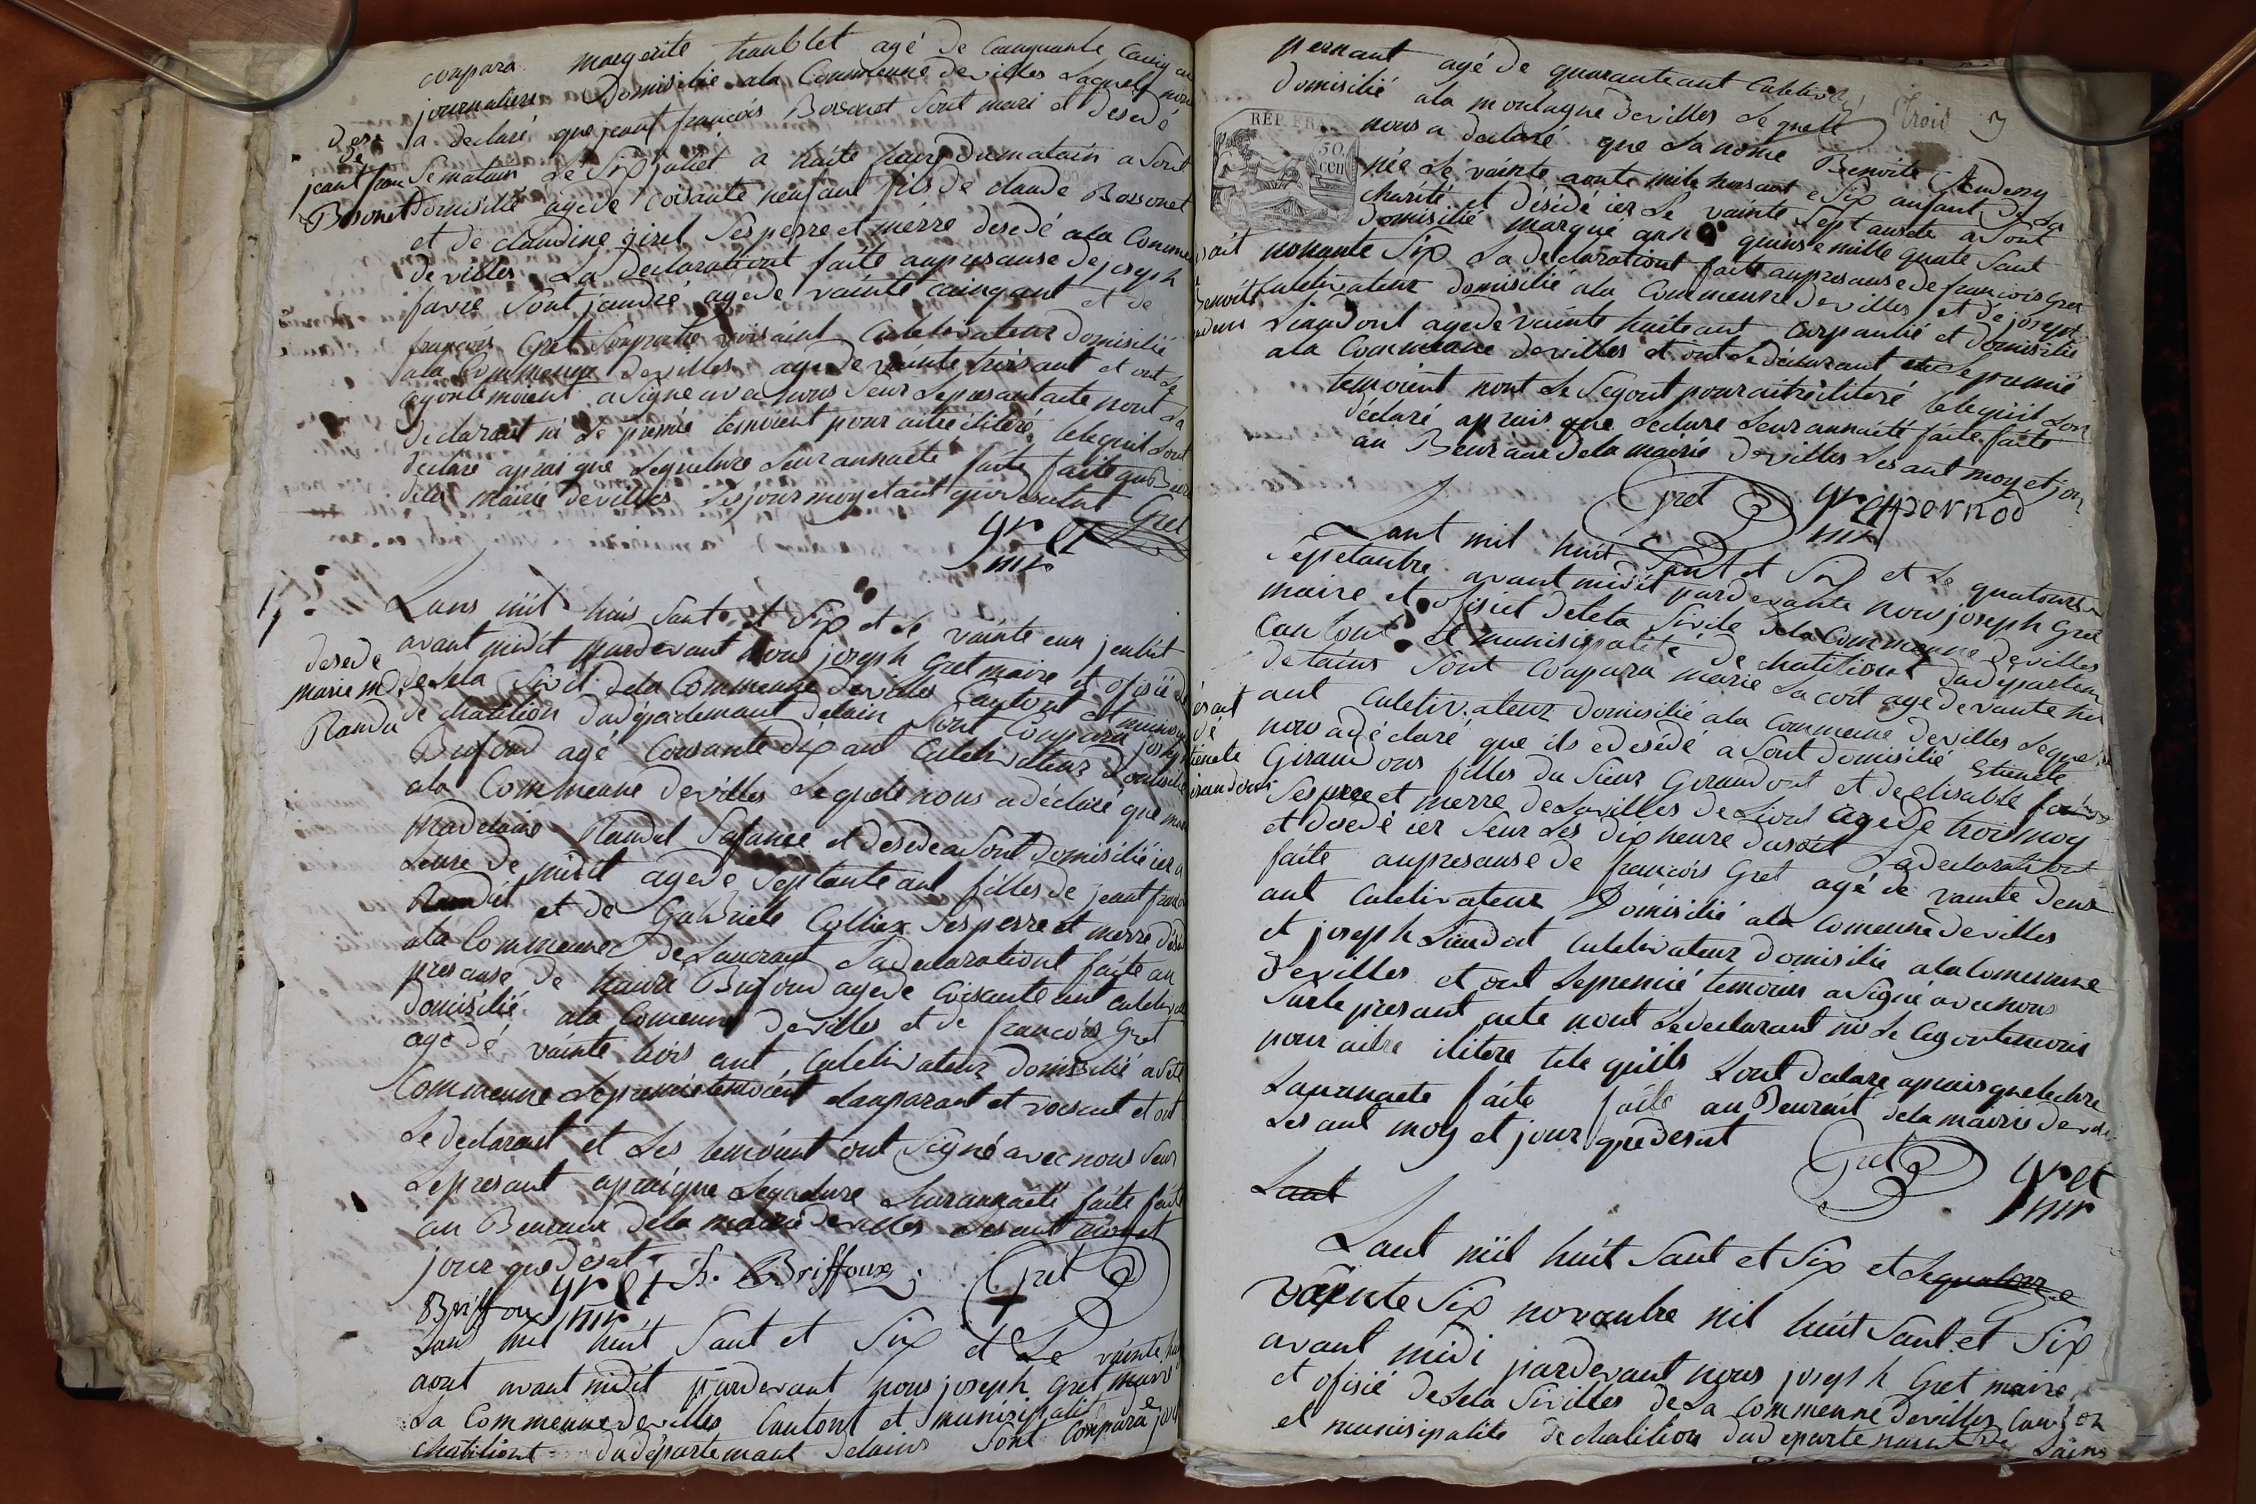 conpara margerite traublet agé de cainquante caing an
journaliere Domisilié ala Commeune de villes Laquel nou
a declaré que jeant françois Bossonet Sont mari et desedé
des
de
jeant fran
Bosonet
Se matain Le Six juliet a huite heure du matain a Sont
domisilié agé de soisante neuf ant fils de claude Bossonet
et de claudine girel Ses perre et mérre desedé ala Commeu
de villes La declarationt faite au presanse de joseph
favre Sont jandre agé de vainte cainq ant et de
françois Gret voisaint Culetivateur domisilié
ala Commeune de villes agé de vainte trois ant et ont Le
temoient a Signe avec nous Seur Le presant acte nont La
declarant ni Le premié temoient pour aitre ilitere telequil Lont
declare aprai que Lequeture Leur annaete faite faite au Beur
dela mairie de villes Les jour moy et ant que desut
Gret
gret
mr
17
desede
marie m.
Randu
Lans mil huis Sant et Six et Le vainte eun jeuliet
avant midit pardevant nous joseph Gret maire et ofisié de
de Leta Sivil dela Commeune de villes Cantont et munisip
de chatilion dudepartemant delain Sont Conpara joseph
Bufond agé Soisante dix ant Culetivateur domisilié
ala Commeune de villes Lequele nous a déclaré que marie
madelaine Randut Safame et desede a Sont domisilié ier a
Leure de midit agé de Septante ant filles de jeant fran
Randut et de Gabriele Colliex Ses perre et merre dese
ala Commeune de Lancrant La declarationt faite au
presanse de Bufond agé de Soisante ant culetiv
domisilié ala Comeune de villes et de françois Gret
agé de vainte trois ant Culetivateur domisilié a dite
Commeune Le premie temoient et voisint et ont
Le declarant et Les temoient ont Signé avec nous Seur
Le présant aprai que Lequeture Leur annaete faite faite
au Beuraux dela mairie de villes Les ant moy et
jour que desut
Briffoux gret mr h. Briffoux Gret
Lans mil huit Sant et Six et Le vainte huit
aout avant midit pardevant nous joseph Gret maire
La Commeune de villes Cantont et munisipalité
chatiliont dudépartemant delains Sont Conpara
pernant agé de quaranteant Culetiv
Trois 3
domisilié ala montagne de villes Lequele
REP. FRA
50
cen
nous a declaré que La nome Benoite
née Le vainte aoute mile huisant e Six anfant de La
charité et désédé ier Le vainte Sept auste a Sont
domisilié marque quinse mille quate Sant
nonante Six La declarationt faite au presanse de françois Gret
Benoite
Culetivateur domisilié ala Commeune de villes et de joseph
Liaudont agé de vainte huite ant Carpantié et domisilié
ala Commeune de villes et ont Le declarant et Le premié
temoient nont Le Segont pour aitre ilitere telequil Lon
declaré aprais que Lecture Leur annaete faite faite
au Beuraux dela mairie de villes Les ant moy et jour
Gret gret mr pernod
Lant mil huit Sant et Six et Le quatourse
Sepetanbre avant midit pardevante nous joseph Gret
maire et ofisiet deleta Sivile dela Commeune de villes
Cantont et munisipalité de chatiliont dudepartem
delains Sont Conpara marie Lacoit agé de vante hui
ant Culetivateur domisilié ala Commeune de villes Lequel
nous a déclaré que ils e desédé a Sont domisilié Etienete
Giraudons filles du Sieur Giraudont et de elisabete
Ses perre et merre de La villes de Liont agé de trois moy
et desedé ier Seur Les dix heure du soit La declarationt
faite au presanse de françois Gret agé de vainte deux
ant Culetivateur Domisilié ala Comeune de villes
et joseph Liaudot Culetivateur domisilié ala Comeune
de villes et ont Le premié temoins a Signé avec nous
Surle presant acte nont Le declarant ni Le Segontemoins
pour aitre ilitere tele quils Lont declare aprais que lecture
Leur annaete faite faite au Beurent dela mairie de vil
Les ant moy et jour que desut
Gret gret mr
Lant
Lant mil huit Sant et Six et Le quatourse
vainte Six novanbre mil huit Sant et Six
avant midi pardevant nous joseph Gret maire
et ofisié de Leta Sivilles de La Commeune de villes Canton
et munisipalite de chatilion dudepartemant de Lains